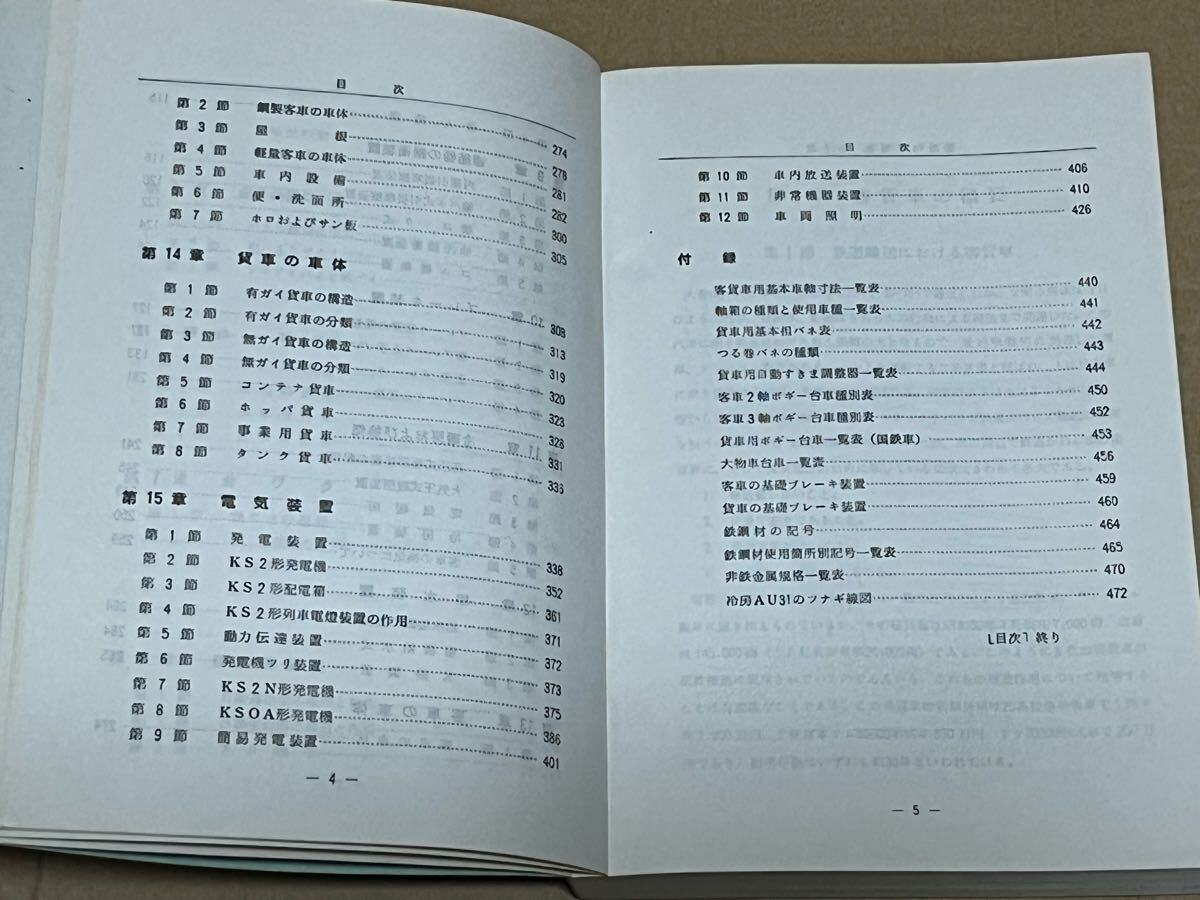 目次
第2節 鋼製客車の車体 274
第3節 屋根 278
第4節 軽量客車の車体 281
第5節 車内設備 282
第6節 便・洗面所 300
第7節 ホロおよびサン板 305
第14章 貨車の車体
第1節 有ガイ貨車の構造 308
第2節 有ガイ貨車の分類 313
第3節 無ガイ貨車の構造 319
第4節 無ガイ貨車の分類 320
第5節 コンテナ貨車 323
第6節 ホッパ貨車 328
第7節 事業用貨車 331
第8節 タンク貨車 336
第15章 電気装置
第1節 発電装置 338
第2節 KS2形発電機 352
第3節 KS2形配電箱 361
第4節 KS2形列車電燈装置の作用 371
第5節 動力伝達装置 372
第6節 発電機ツリ装置 373
第7節 KS2N形発電機 375
第8節 KSOA形発電機 386
第9節 簡易発電装置 401
— 4 —
目次
第10節 車内放送装置 406
第11節 非常機器装置 410
第12節 車両照明 426
付録
客貨車用基本車軸寸法一覧表 440
軸箱の種類と使用車種一覧表 441
貨車用基本担バネ表 442
つる巻バネの種類 443
貨車用自動すきま調整器一覧表 444
客車2軸ボギー台車種別表 450
客車3軸ボギー台車種別表 452
貨車用ボギー台車一覧表(国鉄車) 453
大物車台車一覧表 456
客車の基礎ブレーキ装置 459
貨車の基礎ブレーキ装置 460
鉄鋼材の記号 464
鉄鋼材使用箇所別記号一覧表 465
非鉄金属規格一覧表 470
冷房AU31のツナギ線図 472
〔目次〕終り
— 5 —